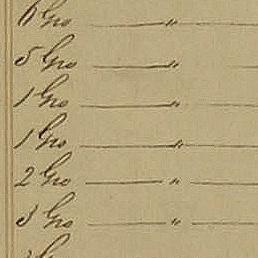 6 Gro — "
5 Gro — " —
1 Gro — " —
1 Gro — " —
2 Gro — " —
3 Gro — " —